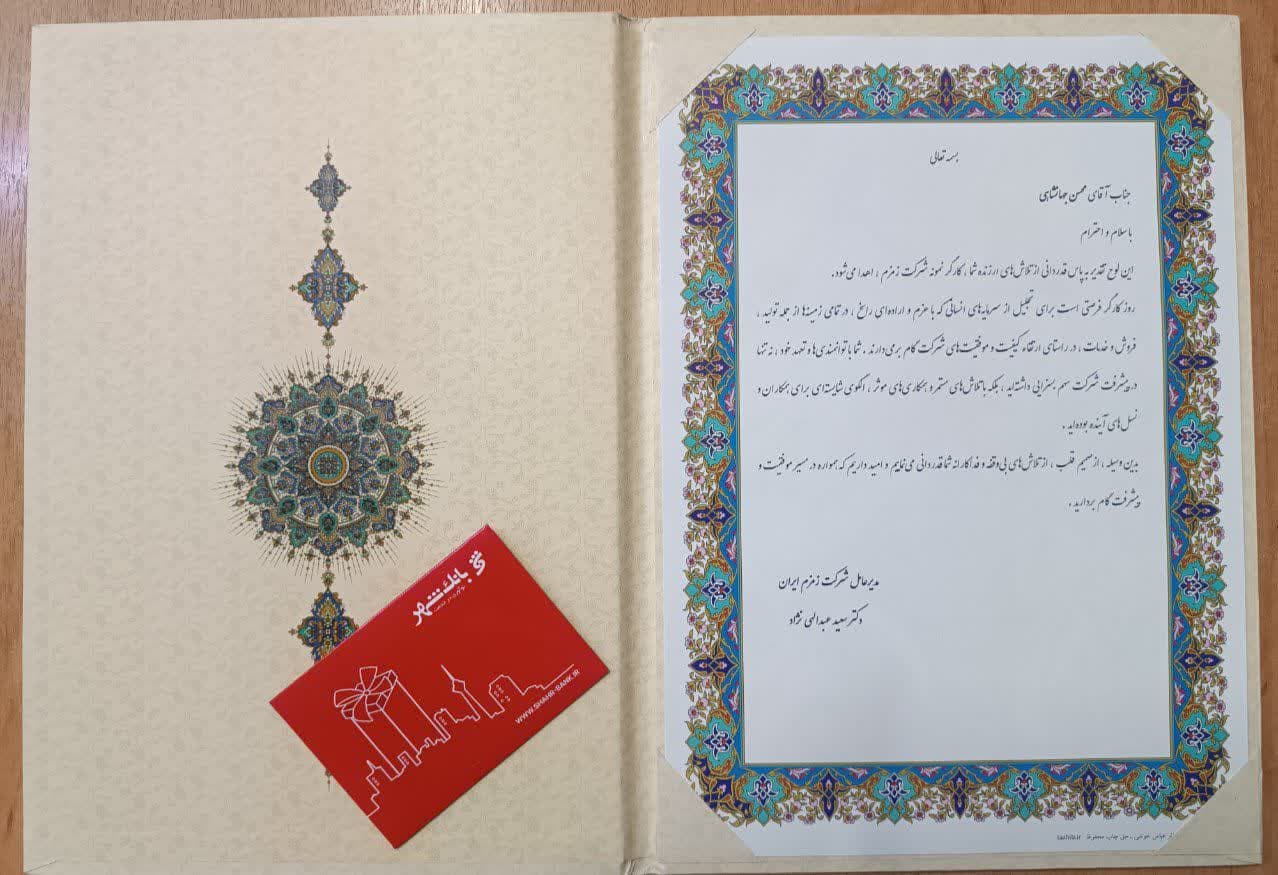 بسمه تعالی
جناب آقای محسن جهانشاهی
با سلام و احترام
این لوح تقدیر به پاس قدردانی از تلاش‌های ارزنده شما ، کارگر نمونه شرکت زمزم ، اهدا می‌شود .
روز کارگر فرصتی است برای تجلیل از سرمایه‌های انسانی که با عزم و اراده‌ای راسخ ، در تمامی زمینه‌ها از جمله تولید ،
فروش و خدمات ، در راستای ارتقاء کیفیت و موفقیت‌های شرکت گام برمی‌دارند . شما با توانمندی‌ها و تعهد خود ، نه تنها
در پیشرفت شرکت سهم بسزایی داشته‌اید ، بلکه با تلاش‌های مستمر و همکاری‌های موثر ، الگوی شایسته‌ای برای همکاران و
نسل‌های آینده بوده‌اید .
بدین وسیله ، از صمیم قلب ، از تلاش‌های بی‌وقفه و فداکارانه شما قدردانی می‌نماییم و امید داریم که همواره در مسیر موفقیت و
پیشرفت گام بردارید .
مدیرعامل شرکت زمزم ایران
دکتر سعید عبدالهی نژاد
بانک شهر
WWW.SHAHR-BANK.IR
حق چاپ محفوظ